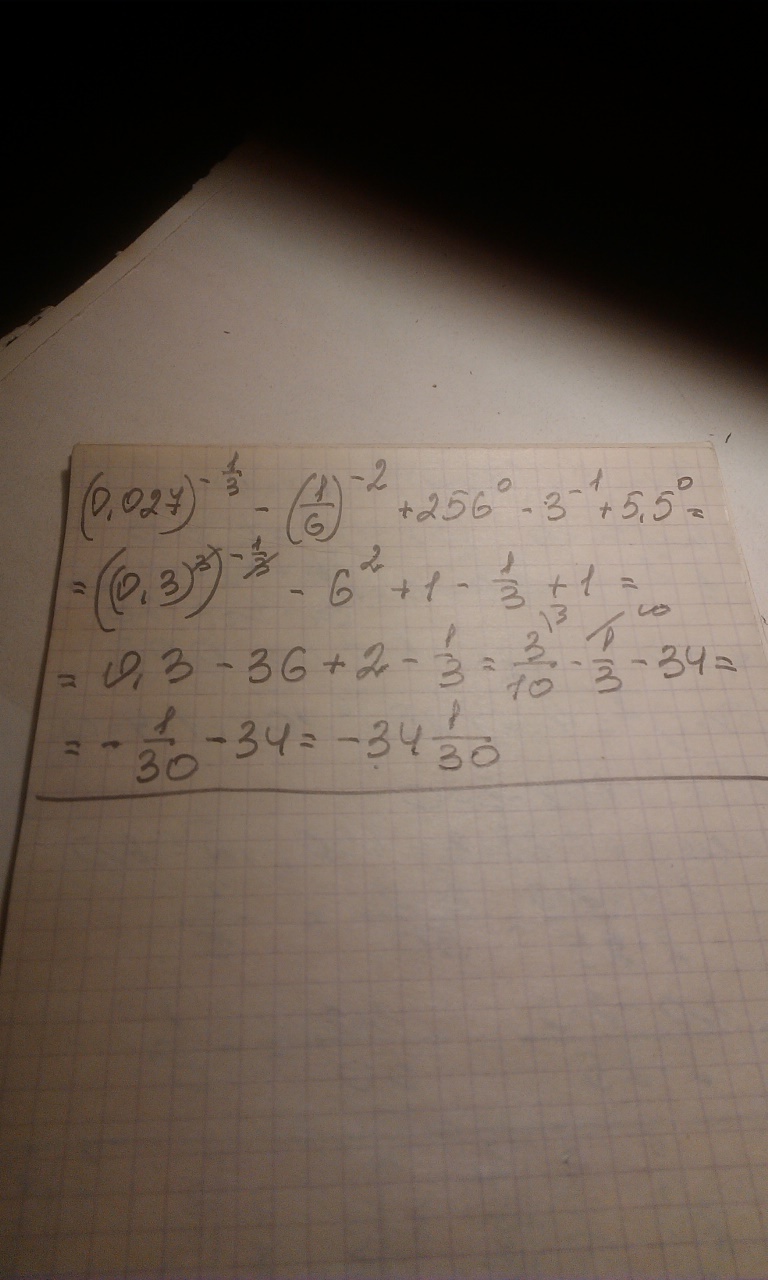 (0,027)^{-1/3} - (1/6)^{-2} + 256^0 - 3^{-1} + 5,5^0 =
= ((0,3)^3)^{-1/3} - 6^2 + 1 - 1/3 + 1 =
= 0,3 - 36 + 2 - 1/3 = 3/10 \3 - 1/3 /10 - 34 =
= - 1/30 - 34 = - 34 1/30